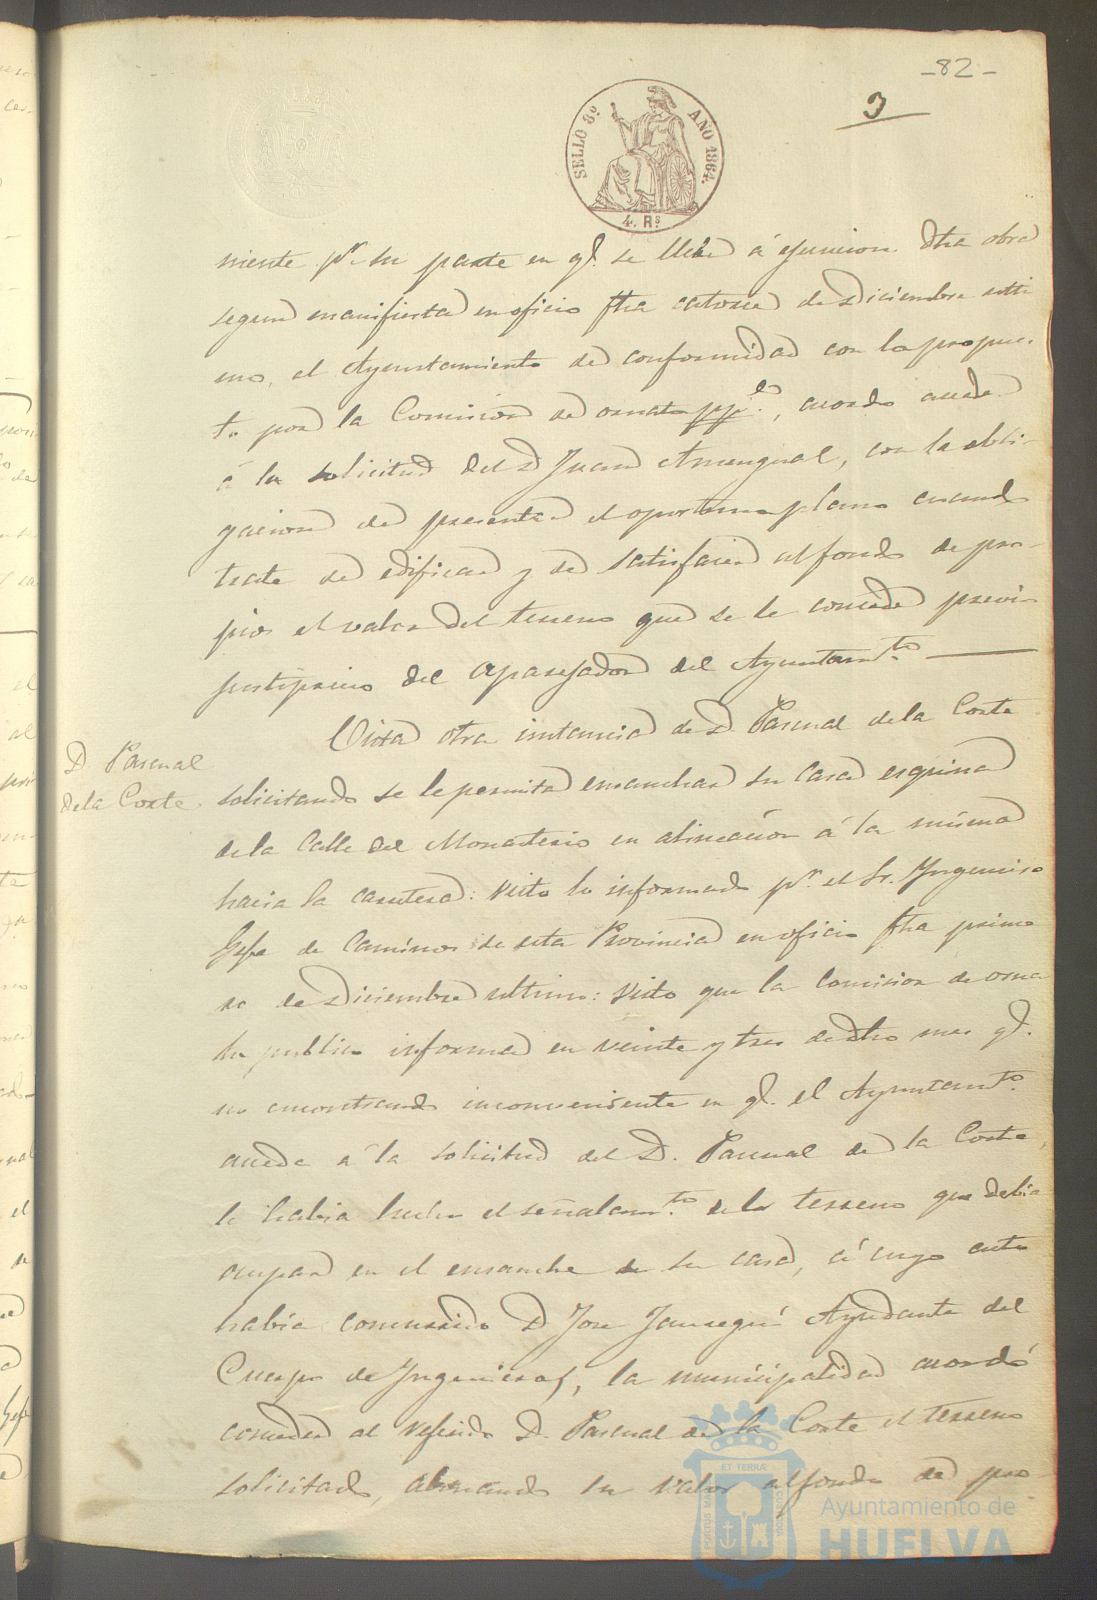 -82-
3
SELLO 8º AÑO 1864.
4. Rs
niente pr. su parte en ql. se lleve á ejecucion dha obra
segun manifiesta en oficio fha catorce de Diciembre ulti
mo, el Ayuntamiento de conformidad con lo propues
to por la Comision de ornato, acordó acceder
á la solicitud del D Juan Amengual, con la obli-
gacion de presentar el oportuno plano cuando
trate de edificar y de satisfacer al fondo de pro-
pios el valor del terreno que se le concede previo
justiprecio del aparejador del Ayuntamto.
D. Pascual
de la Corte.
Vista otra instancia de D. Pascual de la Corte
solicitando se le permita ensanchar su casa esquina
de la Calle del Monasterio en alineacion á la misma
hacia la carretera: Visto lo informado pr. el Sr. Yngeniero
Gefe de Caminos de esta Provincia en oficio fha prime
ro de Diciembre ultimo: Visto que la Comision de orna
to publico informa en veinte y tres de dho mes ql.
no encontrando inconveniente en ql. el Ayuntamto.
acceda á la solicitud del D. Pascual de la Corte,
le habia hecho el señalamto. de la terreno que debia
ocupar en el ensanche de su casa, á cuyo acto
habia concurrido D Jose Jauregui Ayudante del
Cuerpo de Yngenieros, la municipalidad acordó
conceder al referido D. Pascual de la Corte el terreno
solicitado, abonando su valor al fondo de pro-
ET TERRÆ
PORTUS MARIS
CUSTODIA
Ayuntamiento de
HUELVA